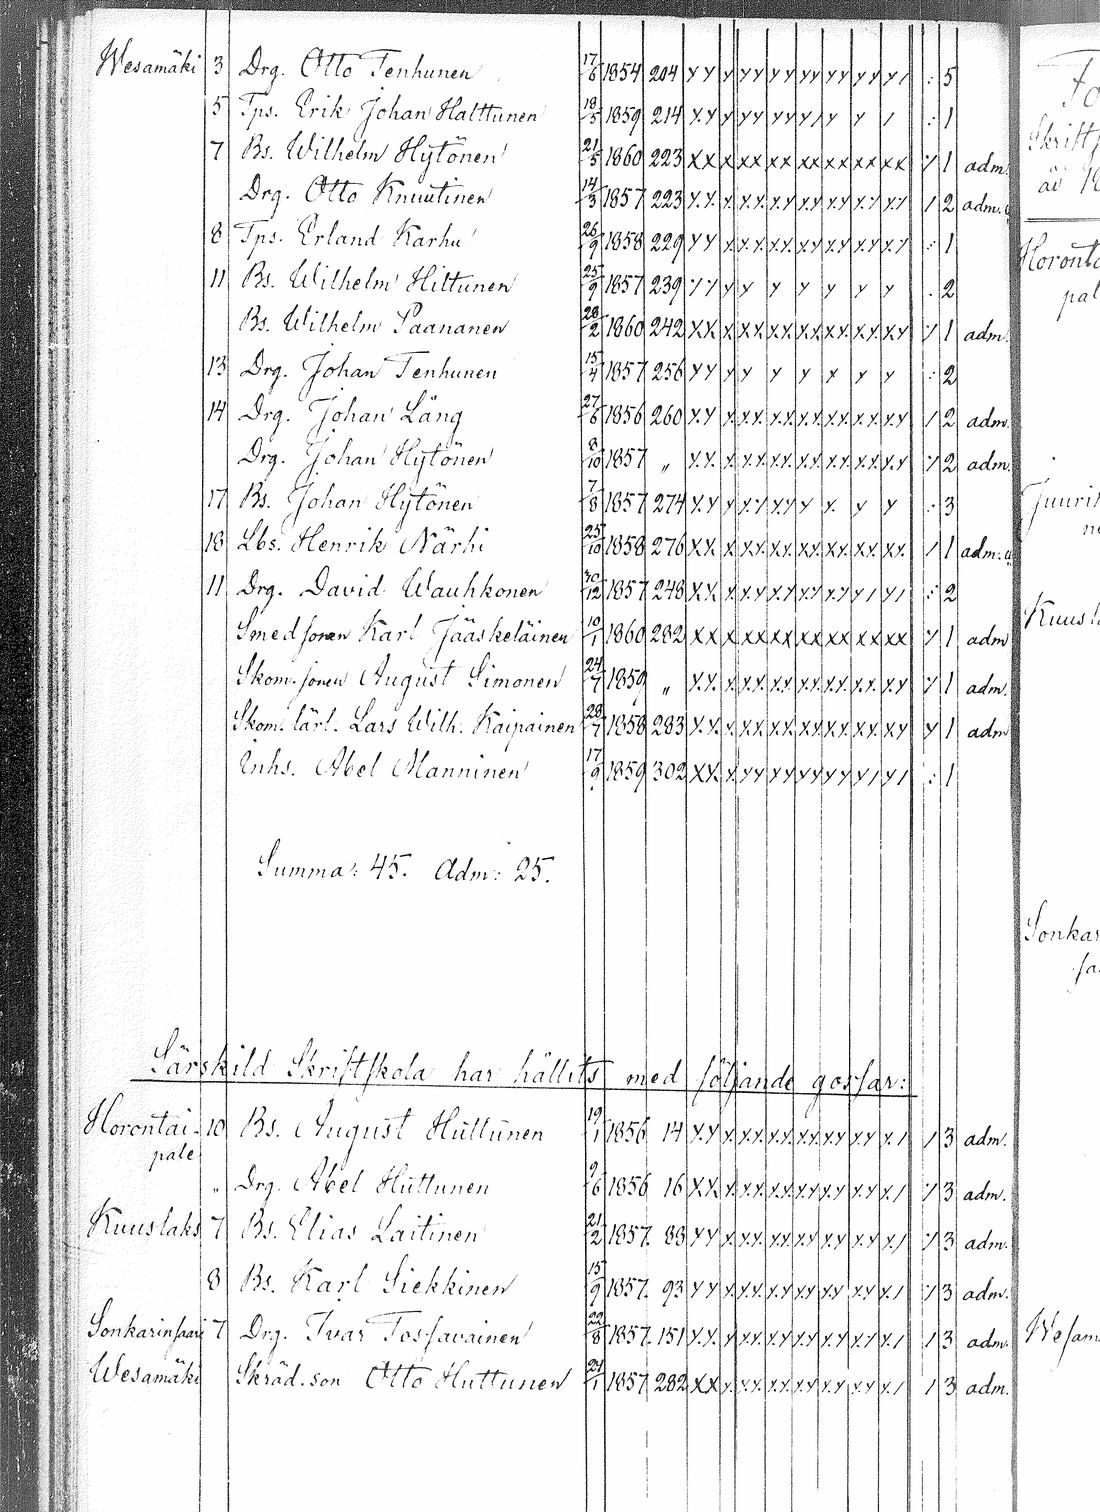 Wesamäki 3 Drg. Otto Tenhunen 17/6 1854 204 5
5 Tps. Erik Johan Halttunen 18/5 1859 214 1
7 Bs. Wilhelm Hytönen 21/5 1860 223 1 adm.
Drg. Otto Knuutinen 14/3 1857 223 2 adm.
8 Tps. Erland Karhu 26/9 1858 229 1
11 Bs. Wilhelm Hiltunen 25/9 1857 239 2
Bs. Wilhelm Paananen 28/2 1860 242 1 adm.
13 Drg. Johan Tenhunen 15/4 1857 256 2
14 Drg. Johan Lång 27/6 1856 260 2 adm.
Drg. Johan Hytönen 8/10 1857 „ 2 adm.
17 Bs. Johan Hytönen 7/8 1857 274 3
18 Lbs. Henrik Närhi 25/10 1858 276 1 adm.
11 Drg. David Wauhkonen 30/12 1857 248 2
Smedsonen Karl Jääskeläinen 10/1 1860 282 1 adm
Skom. sonen August Simonen 24/7 1859 „ 1 adm.
Skom. lärl. Lars Wilh. Kaipainen 28/7 1858 283 1 adm
Inhs. Abel Manninen 17/9 1859 302 1
Summa: 45. Adm: 25.
Särskild Skriftskola har hållits med följande gossar:
Horontai- 10 Bs. August Huttunen 19/1 1856 14 3 adm.
pale
„ Drg. Abel Huttunen 9/6 1856 16 3 adm.
Kuuslaks 7 Bs. Elias Laitinen 21/2 1857. 88 3 adm.
8 Bs. Karl Siekkinen 15/9 1857. 93 3 adm.
Sonkarinsaari 7 Drg. Ivar Tossavainen 22/8 1857. 151 3 adm.
Wesamäki Skräd. son Otto Huttunen 24/1 1857 282 3 adm.